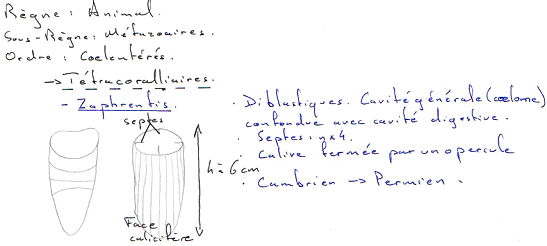 Règne : Animal.
Sous-Règne : Métazoaires.
Ordre : Coelentérés.
→ Tétracoralliaires.
- Zaphrentis.
septes
h = 6 cm
Face
calicifère
· Diblastiques. Cavité générale (coelome)
confondue avec cavité digestive.
· Septes : n x 4.
· Calice fermée par un opercule
· Cambrien → Permien.